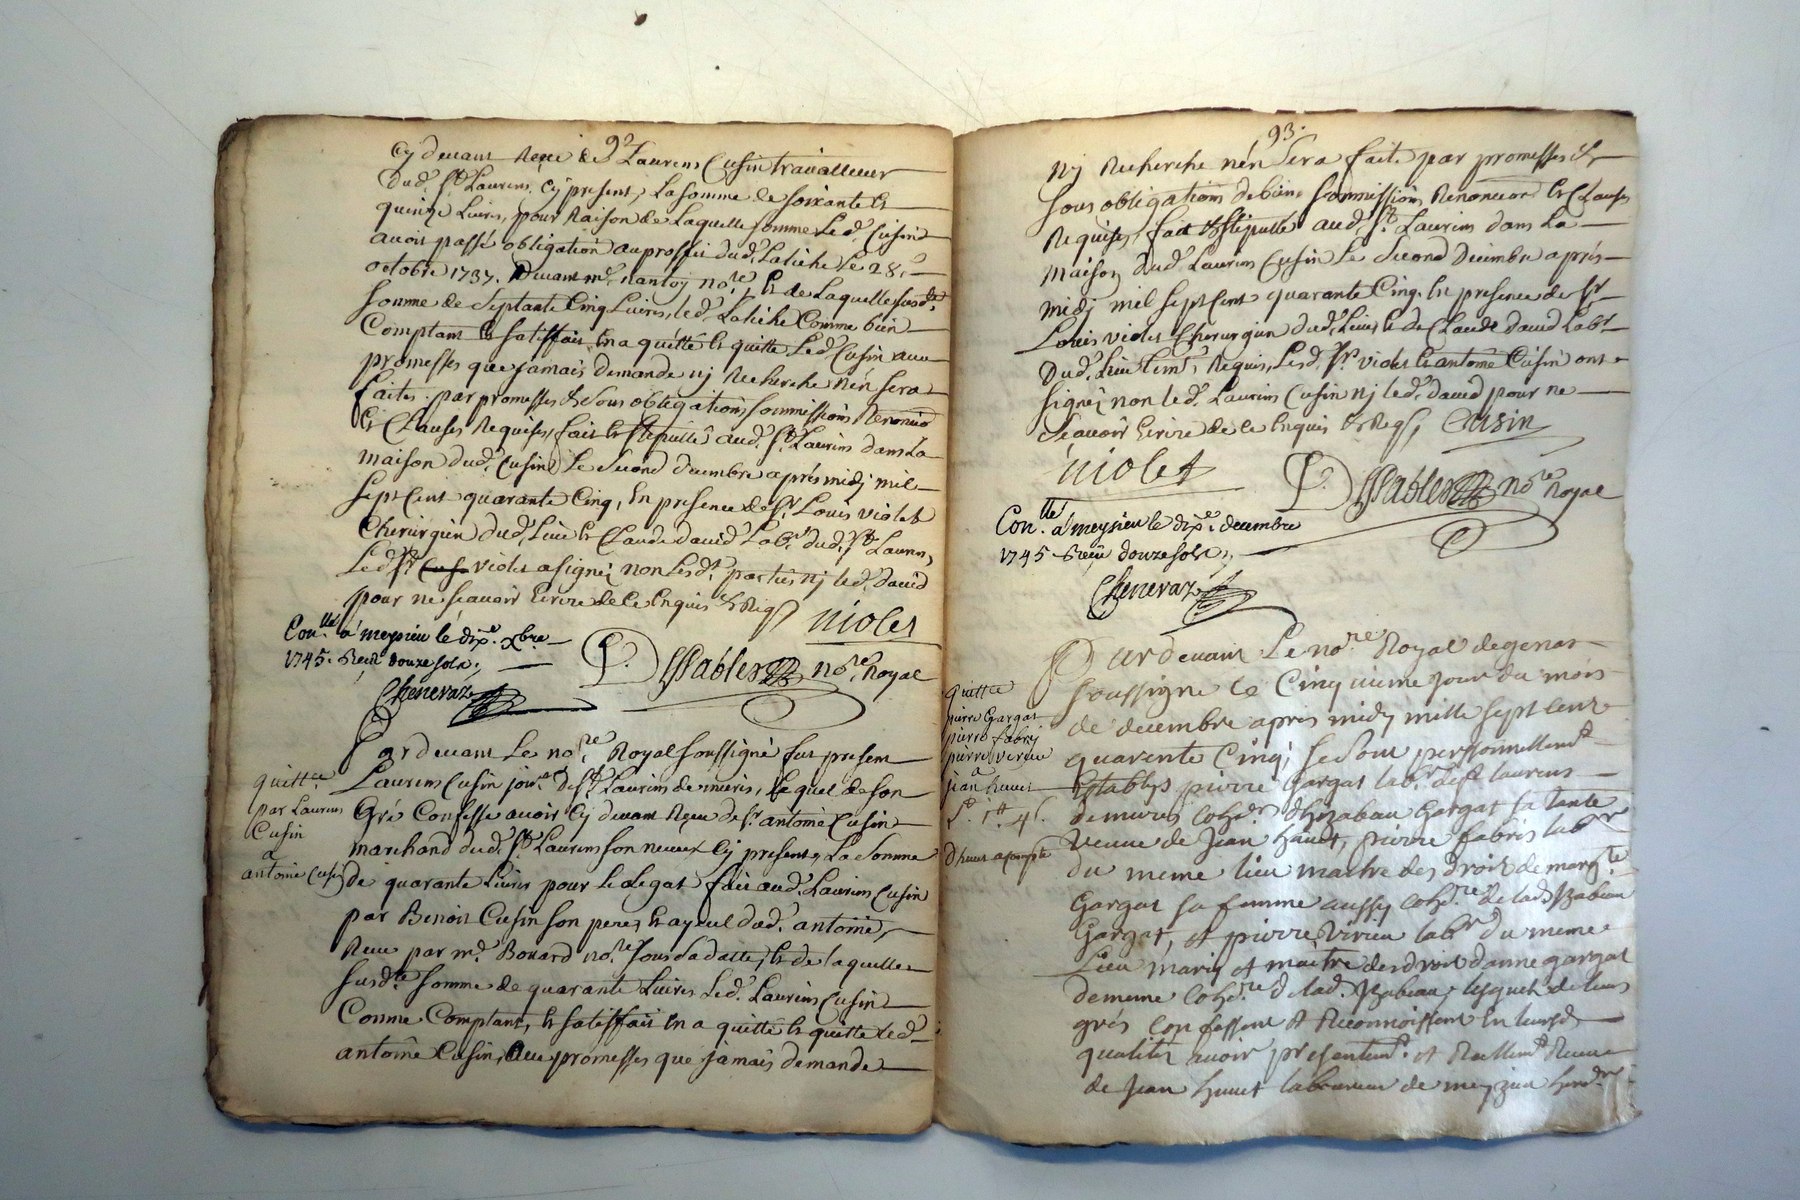 92
Cy devant Reçeu de Laurens Cusin travailleur
dud. St Laurens, cy present, La somme de soixante et
quinze Livres, pour Raison de Laquelle somme Led. Cusin
avoit passé obligation au proffit dud. Latiche Le 28e
octobre 1737. devant me nantoy nore, et de Laquelle susdte
somme de septante Cinq Livres, led. Latiche Comme bien
Comptant et satisfait en a quitté et quitte Led. Cusin avec
promesses que jamais demande nj Recherche n'en sera
faites. par promesses et sous obligations soumissions Renoncion
et Clauses Requises, fait et stipullé aud. St Laurens dans La
maison dud. Cusin Le second decembre aprés midj mil
sept Cent quarante Cinq, En presence de sr Louis violet
Chirurgien dud. Lieu et Claude david Labr. dud. St Laurens,
Led. sr violet a signé non Lesd. parties nj led. david
pour ne sçavoir Ecrire de Ce Enquis et Reqs violet
Conllé a meysieu le dixe xbre
1745. Receu douze sols,
P. Sablers nore Royal
Chenevaz
Pardevant Le nore Royal soussigné fut present
quittce
par Laurens
Cusin
a
antoine Cusin
Laurens Cusin jour. de St Laurens de mures, Lequel de son
Gré Confesse avoir Cy devant Reçeu de sr antoine Cusin
marchand dud. St Laurens son neveux Cy present, La somme
de quarante Livres pour Le Legat fait aud. Laurens Cusin
par Benoit Cusin son pere, et ayeul dud. antoine,
Receu par me Bouard nore sous sa datte, et de laquelle
susdte somme de quarante Livres Led. Laurens Cusin
Comme Comptant, et satisfait en a quitté et quitte Led.
antoine Cusin, Avec promesses que jamais demande
93.
nj Recherche n'en sera faite par promesses et
sous obligations de biens soumissions Renoncion et Clauses
Requises, fait et stipullé aud. St Laurens dans La
maison dud. Laurens Cusin Le second decembre aprés
midj mil sept Cent quarante Cinq. En presence de sr
Louis violet Chirurgien dud. Lieu, et de Claude david Labr
dud. Lieu temt Requis, Lesd. sr violet et antoine Cusin ont
signéz non led. Laurens Cusin nj led. david pour ne
sçavoir Ecrire de Ce Enquis et Reqs, Cusin
violet
P. Sablers nore Royal
Conllé a meysieu le dixe decembre
1745 Receu douze sols,
Chenevaz
quittce
pierre Gargat
pierre fabrj
pierre vivien
a
jean huvet
Pardevant Le nore Royal de genas
soussigné Le Cinquieme jour du mois
de decembre apres midy mille sept cent
quarente Cinq, se sont personnellemt
Establys pierre Gargat labr de st laurens
de mures Coher. dhizabau Gargat sa tante
veuve de Jean Huvet, pierre fabris labr
du meme lieu maitre des droit de margte
Gargat sa femme aussy Cohere de lad. Izabeau
Gargat, et pierre vivien labr du meme
Lieu mariy et maitre des droit danne gargat
de meme Cohere de lad. Izabeau, lesquels de leurs
grés Confessent et Reconnoissent en leursd.
qualités avoir presentemt et Reellemt Receu
de Jean huvet laboureur de meyzieu